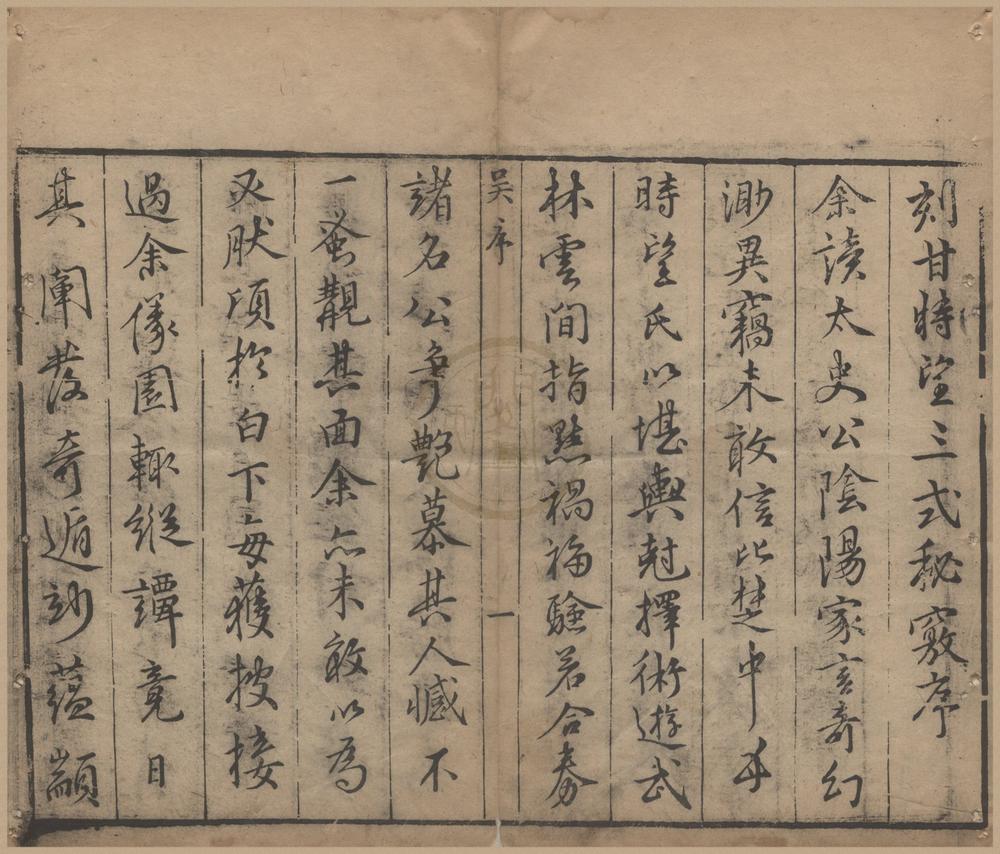 刻甘時望三式秘竅序
余讀太史公陰陽家言奇幻
渺異竊未敢信比楚中甘
時望氏以堪輿尅擇術遊武
林雲間指點禍福驗若合券
吳序
一
諸名公爭艷慕其人憾不
一蚤覿其面余亦未敢以為
然頃於白下每獲披接
過余傢園輒縱譚竟日
其闡發奇遁玅蘊顓